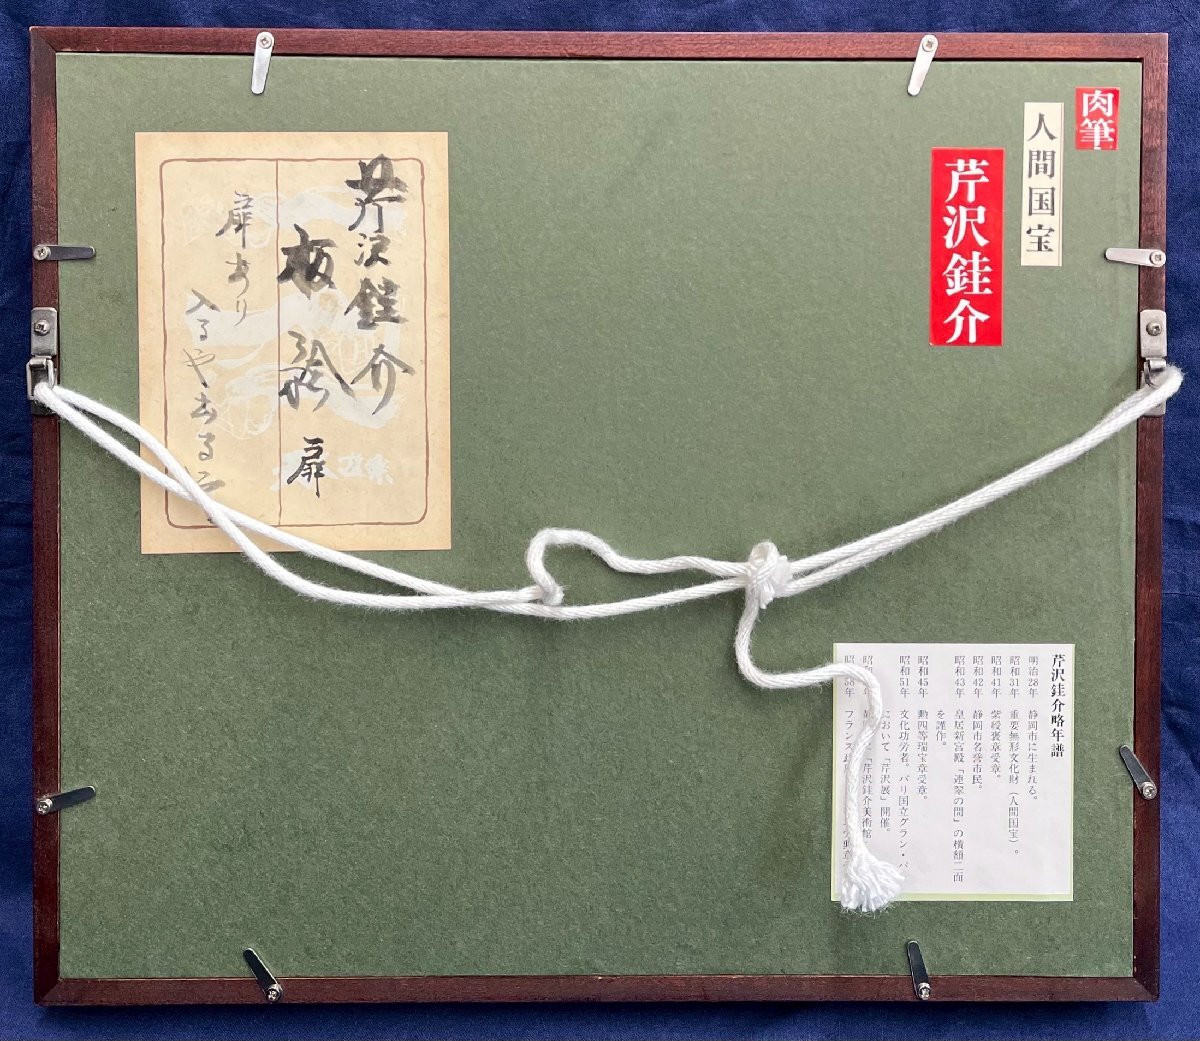 肉筆
人間国宝
芹沢銈介
芹沢銈介
板絵 扉
扉あり
入るやあるこ
芹沢銈介略年譜
明治28年 静岡市に生まれる。
昭和31年 重要無形文化財（人間国宝）。
昭和41年 紫綬褒章受章。
昭和42年 静岡市名誉市民。
昭和43年 皇居新宮殿「連翠の間」の横額二面
を謹作。
昭和45年 勲四等瑞宝章受章。
昭和51年 文化功労者。パリ国立グラン・パ
において「芹沢展」開催。
昭和 年 「芹沢銈介美術館
昭 58年 フランス政